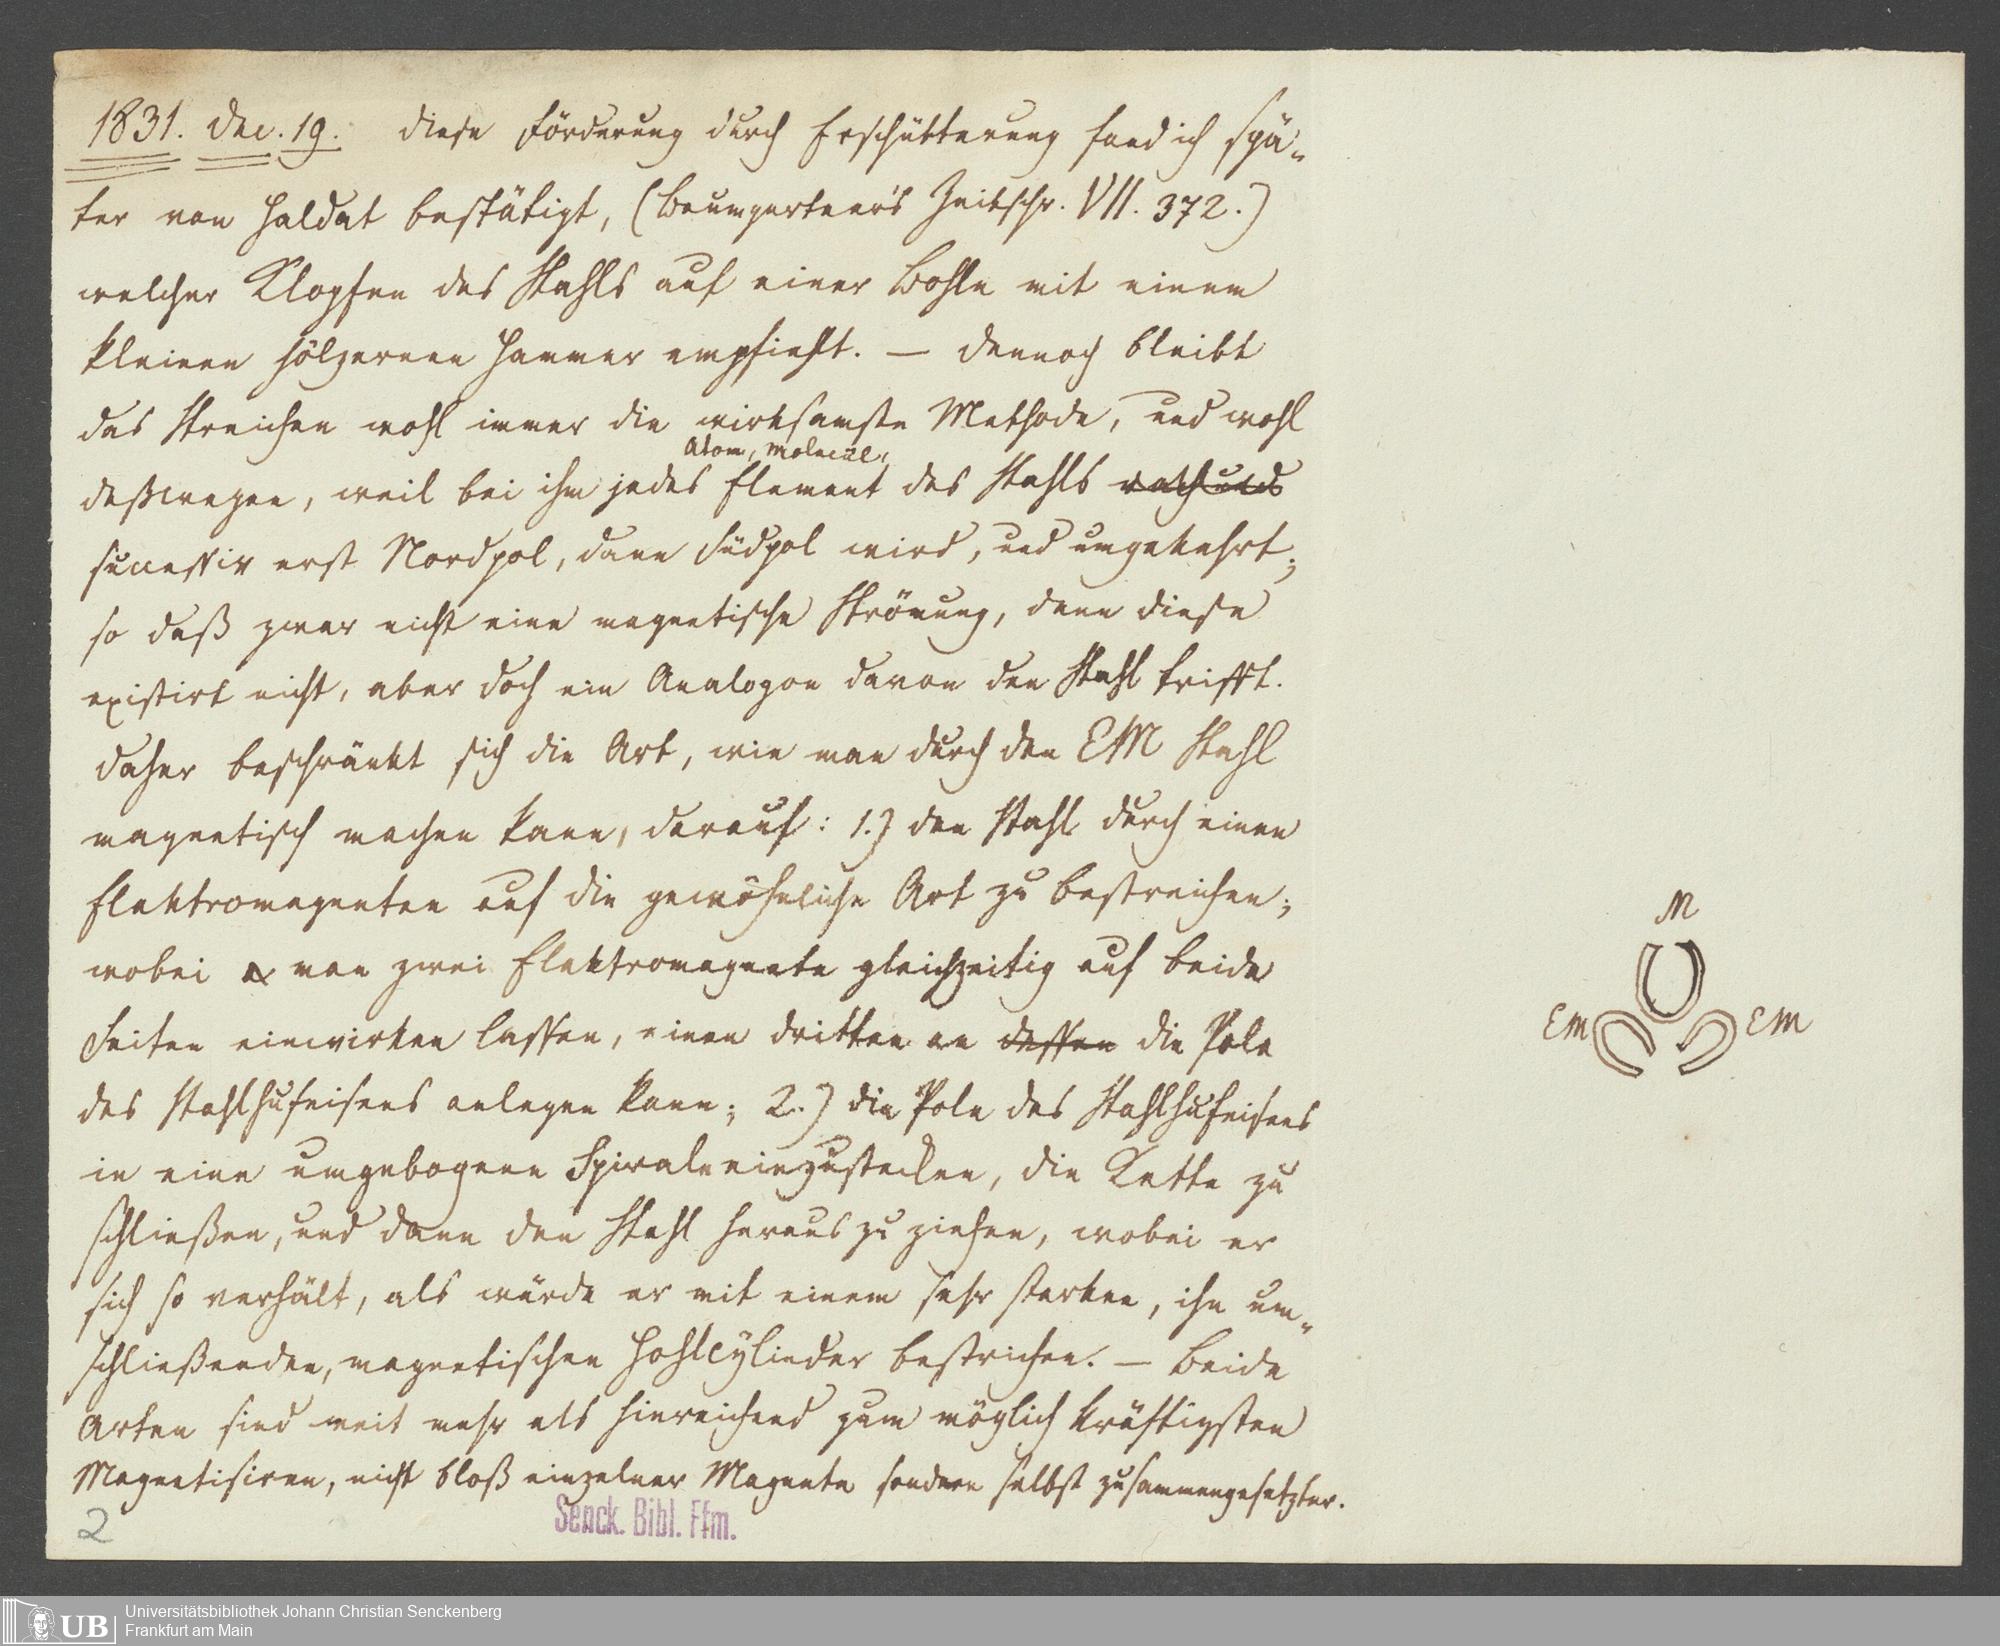 1831. Dec. 19. Diese Förderung durch Erschütterung fand ich spä-
ter von Haldat bestätigt, (Baumgartner's Zeitschr. VII. 372.)
welcher Klopfen des Stahls auf einer Bohle mit einem
kleinen hölzernen Hammer empfiehlt. — Dennoch bleibt
das Streichen wohl immer die wirksamste Methode, und wohl
Atom, Molecül,
deßwegen, weil bei ihm jedes Element des Stahls
successiv erst Nordpol, dann Südpol wird, und umgekehrt;
so daß zwar nicht eine magnetische Strömung, denn diese
existirt nicht, aber doch ein Analogon davon den Stahl trifft.
Daher beschränkt sich die Art, wie man durch den EM Stahl
magnetisch machen kann, darauf: 1.) den Stahl durch einen
Elektromagneten auf die gewöhnliche Art zu bestreichen;
wobei man zwei Elektromagnete gleichzeitig auf beide
Seiten einwirken lassen, einen dritten an dessen die Pole
des Stahlhufeisens anlegen kann; 2.) die Pole des Stahlhufeisens
in eine umgebogene Spirale einzustecken, die Kette zu
schließen, und dann den Stahl heraus zu ziehen, wobei er
sich so verhält, als würde er mit einem sehr starken, ihn um-
schließenden, magnetischen Hohlcylinder bestrichen. — Beide
Arten sind weit mehr als hinreichend zum möglich kräftigsten
Magnetisiren, nicht bloß einzelner Magnete sondern selbst zusammengesetzter.
M
EM
EM
2
Senck. Bibl. Ffm.
UB
Universitätsbibliothek Johann Christian Senckenberg
Frankfurt am Main